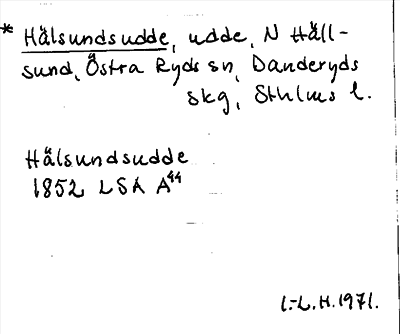 * Hälsundsudde, udde, N Häll-
sund, Östra Ryds sn, Danderyds
skg, Sthlms l.
Hälsundsudde
1852 LSA A44
l.-L.H. 1971.